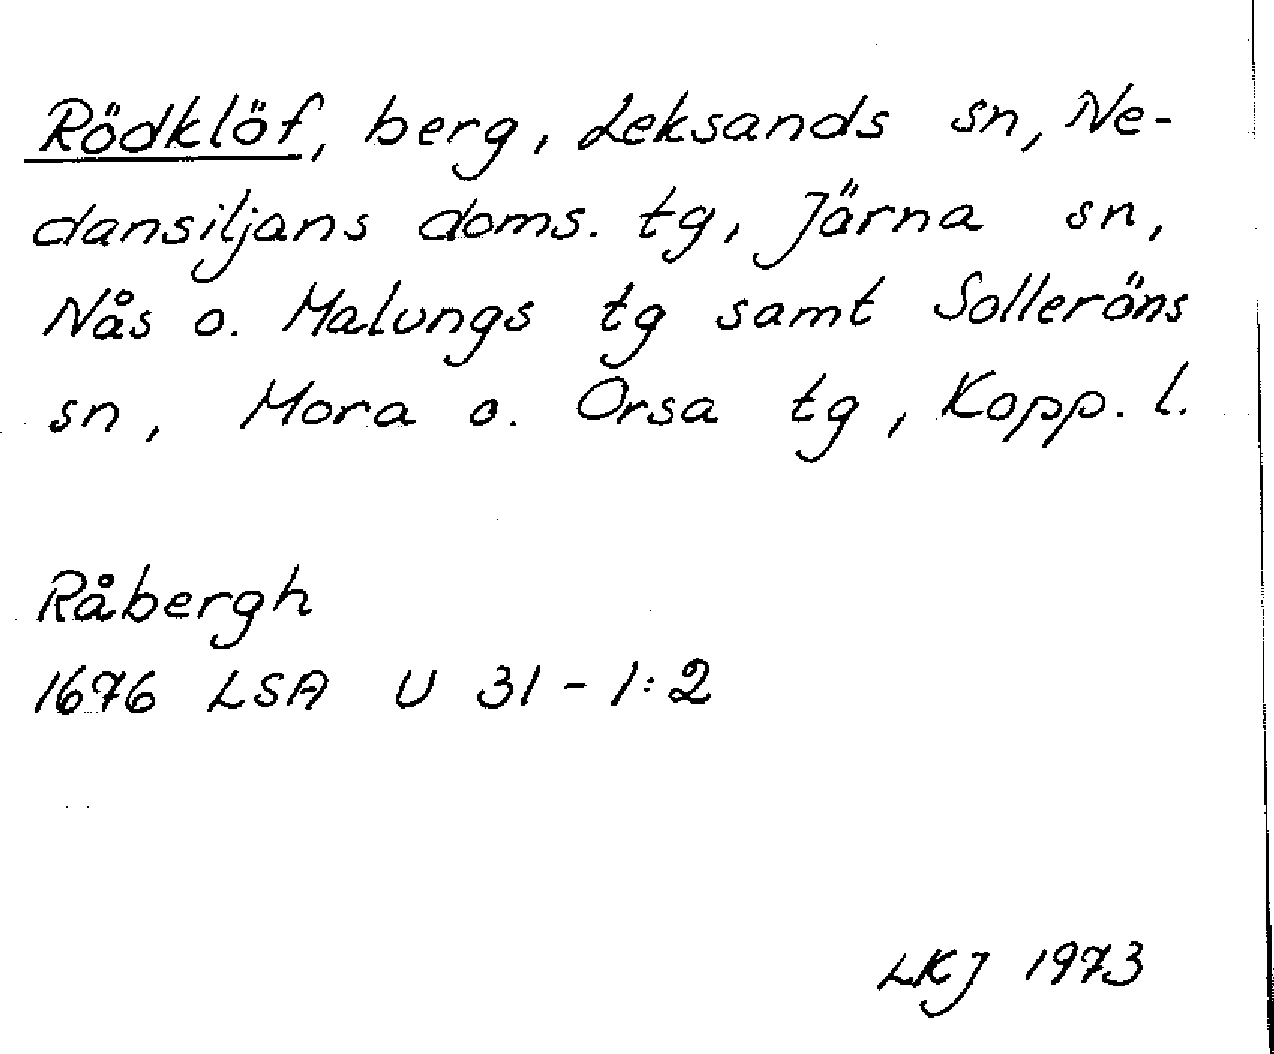 Rödklöf, berg, Leksands sn, Ne-
dansiljans doms. tg, Järna sn,
Nås o. Malungs tg samt Solleröns
sn, Mora o. Orsa tg, Kopp. l.
Råbergh
1676 LSA U 31-1:2
LKJ 1973